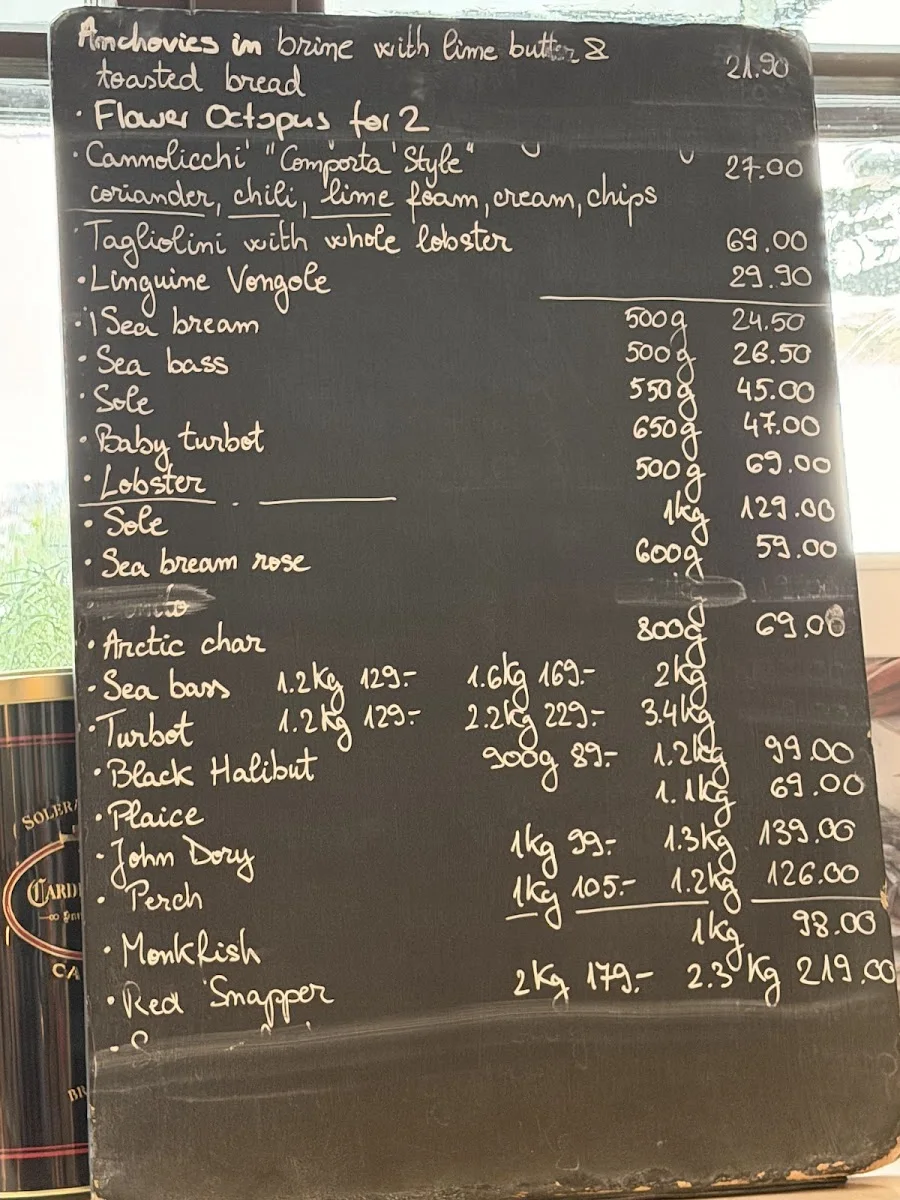 Anchovies in brine with lime butter &
toasted bread 21.90
· Flower Octopus for 2
· Cannolicchi "Comporta Style" 27.00
coriander, chili, lime foam, cream, chips
· Tagliolini with whole lobster 69.00
· Linguine Vongole 29.90
· 1 Sea bream 500g 24.50
· Sea bass 500g 26.50
· Sole 550g 45.00
· Baby turbot 650g 47.00
· Lobster 500g 69.00
· Sole 1kg 129.00
· Sea bream rose 600g 59.00
· Arctic char 800g 69.00
· Sea bass 1.2kg 129.- 1.6kg 169.- 2kg
· Turbot 1.2kg 129.- 2.2kg 229.- 3.4kg
· Black Halibut 900g 89.- 1.2kg 99.00
· Plaice 1.1kg 69.00
· John Dory 1kg 99.- 1.3kg 139.00
· Perch 1kg 105.- 1.2kg 126.00
· Monkfish 1kg 98.00
· Red Snapper 2kg 179.- 2.3kg 219.00
SOLERA
CARD
CA
BR